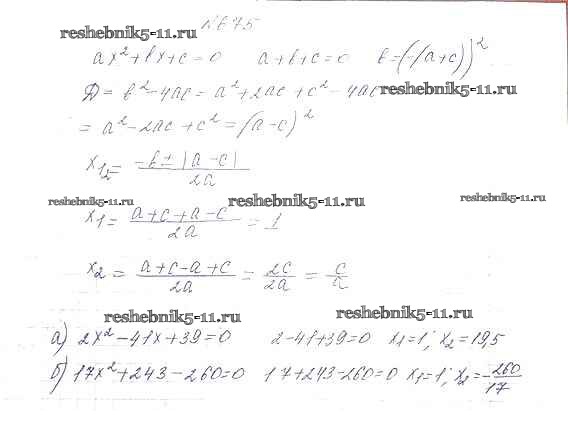 №675
reshebnik5-11.ru
ax² + bx + c = 0 a + b + c = 0 b = (-(a+c))²
D = b² - 4ac = a² + 2ac + c² - 4ac reshebnik5-11.ru
= a² - 2ac + c² = (a - c)²
x₁,₂ = (-b ± |a - c|)/2a
reshebnik5-11.ru reshebnik5-11.ru reshebnik5-11.ru
x₁ = (a + c + a - c)/2a = 1
x₂ = (a + c - a + c)/2a = 2c/2a = c/a
reshebnik5-11.ru reshebnik5-11.ru
а) 2x² - 41x + 39 = 0 2 - 41 + 39 = 0 x₁ = 1; x₂ = 19,5
б) 17x² + 243 - 260 = 0 17 + 243 - 260 = 0 x₁ = 1; x₂ = -260/17